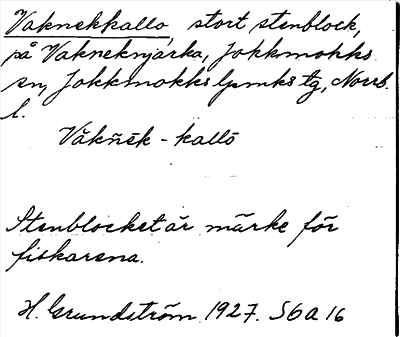 Vaknekkallo, stort stenblock,
på Vakneknjarka, Jokkmokks
sn, Jokkmokks lpmks tg, Norrb.
l.
Våkñēk - kallō
Stenblocket är märke för
fiskarena.
H. Grundström 1927. S6a16